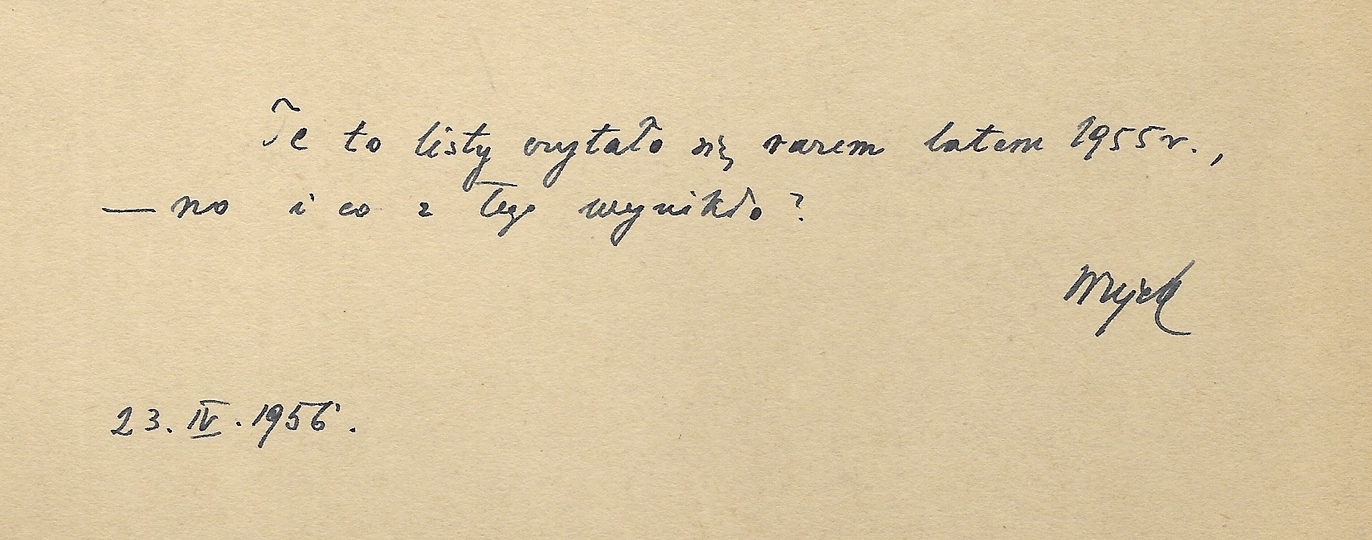 Te to listy czytało się razem latem 1955 r.,
— no i co z tego wynikło?
23. IV. 1956.